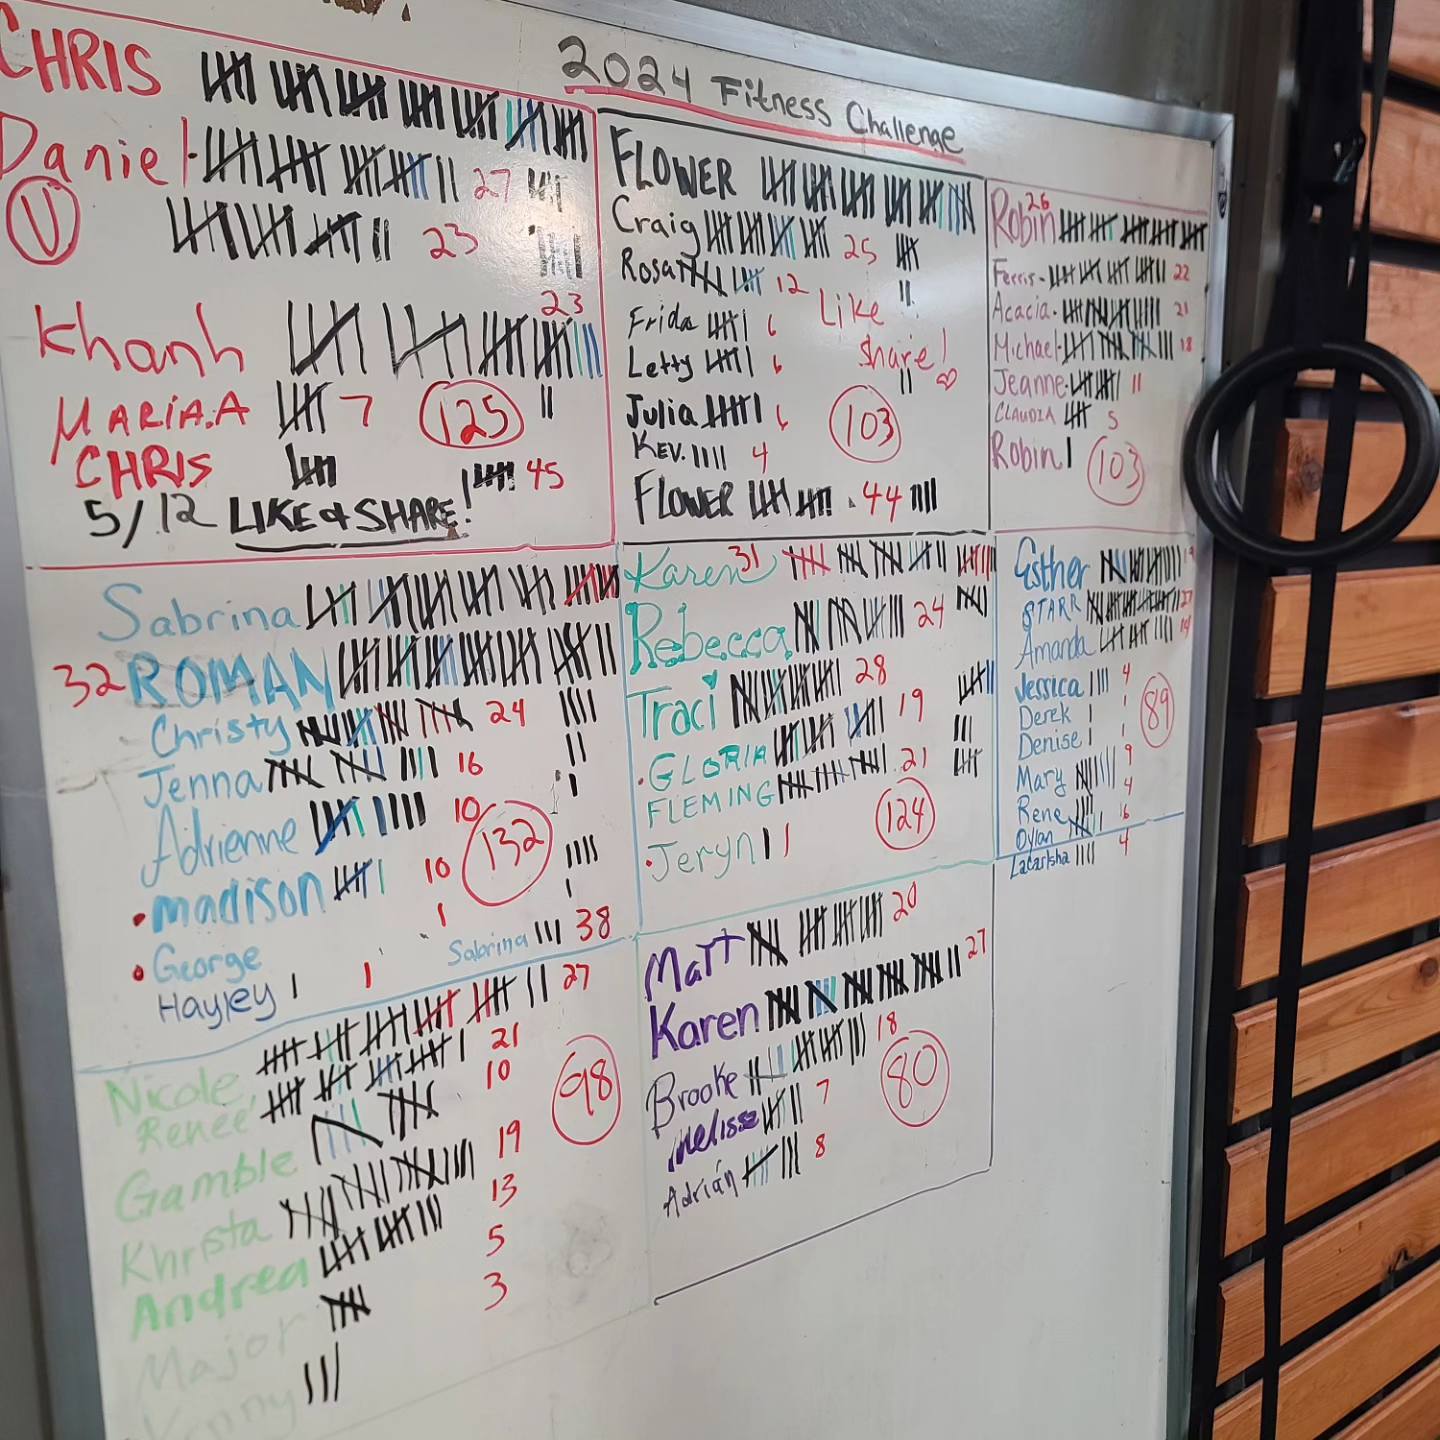 2024 Fitness Challenge
CHRIS
Daniel 27
V 23
Khanh 23
MARIA.A 7 125
CHRIS 45
5/12 LIKE & SHARE!
FLOWER
Craig 25
Rosa 12
Frida 6 Like
Letty 6 Share!
Julia 6 103
KEV. 4
FLOWER 44
Robin 26
Ferris 22
Acacia 21
Michael 18
Jeanne 11
CLAUDIA 5
Robin 103
Sabrina
32 ROMAN
Christy 24
Jenna 16
Adrienne 10 132
madison 10
George 1
Sabrina 38
Hayley 1
Karen 31
Rebecca 24
Traci 28
GLORIA 19
FLEMING 21
Jeryn 1 124
Esther
STARR 27
Amanda
Jessica 4
Derek 1 89
Denise 1
Mary 9
Rene 4
Dylan 6
4
Nicole 27
Renee 21
Gamble 10 98
Khrista 19
Andrea 13
Major 5
Kenny 3
Matt 20
Karen 27
Brooke 18 80
melissa 7
Adrián 8